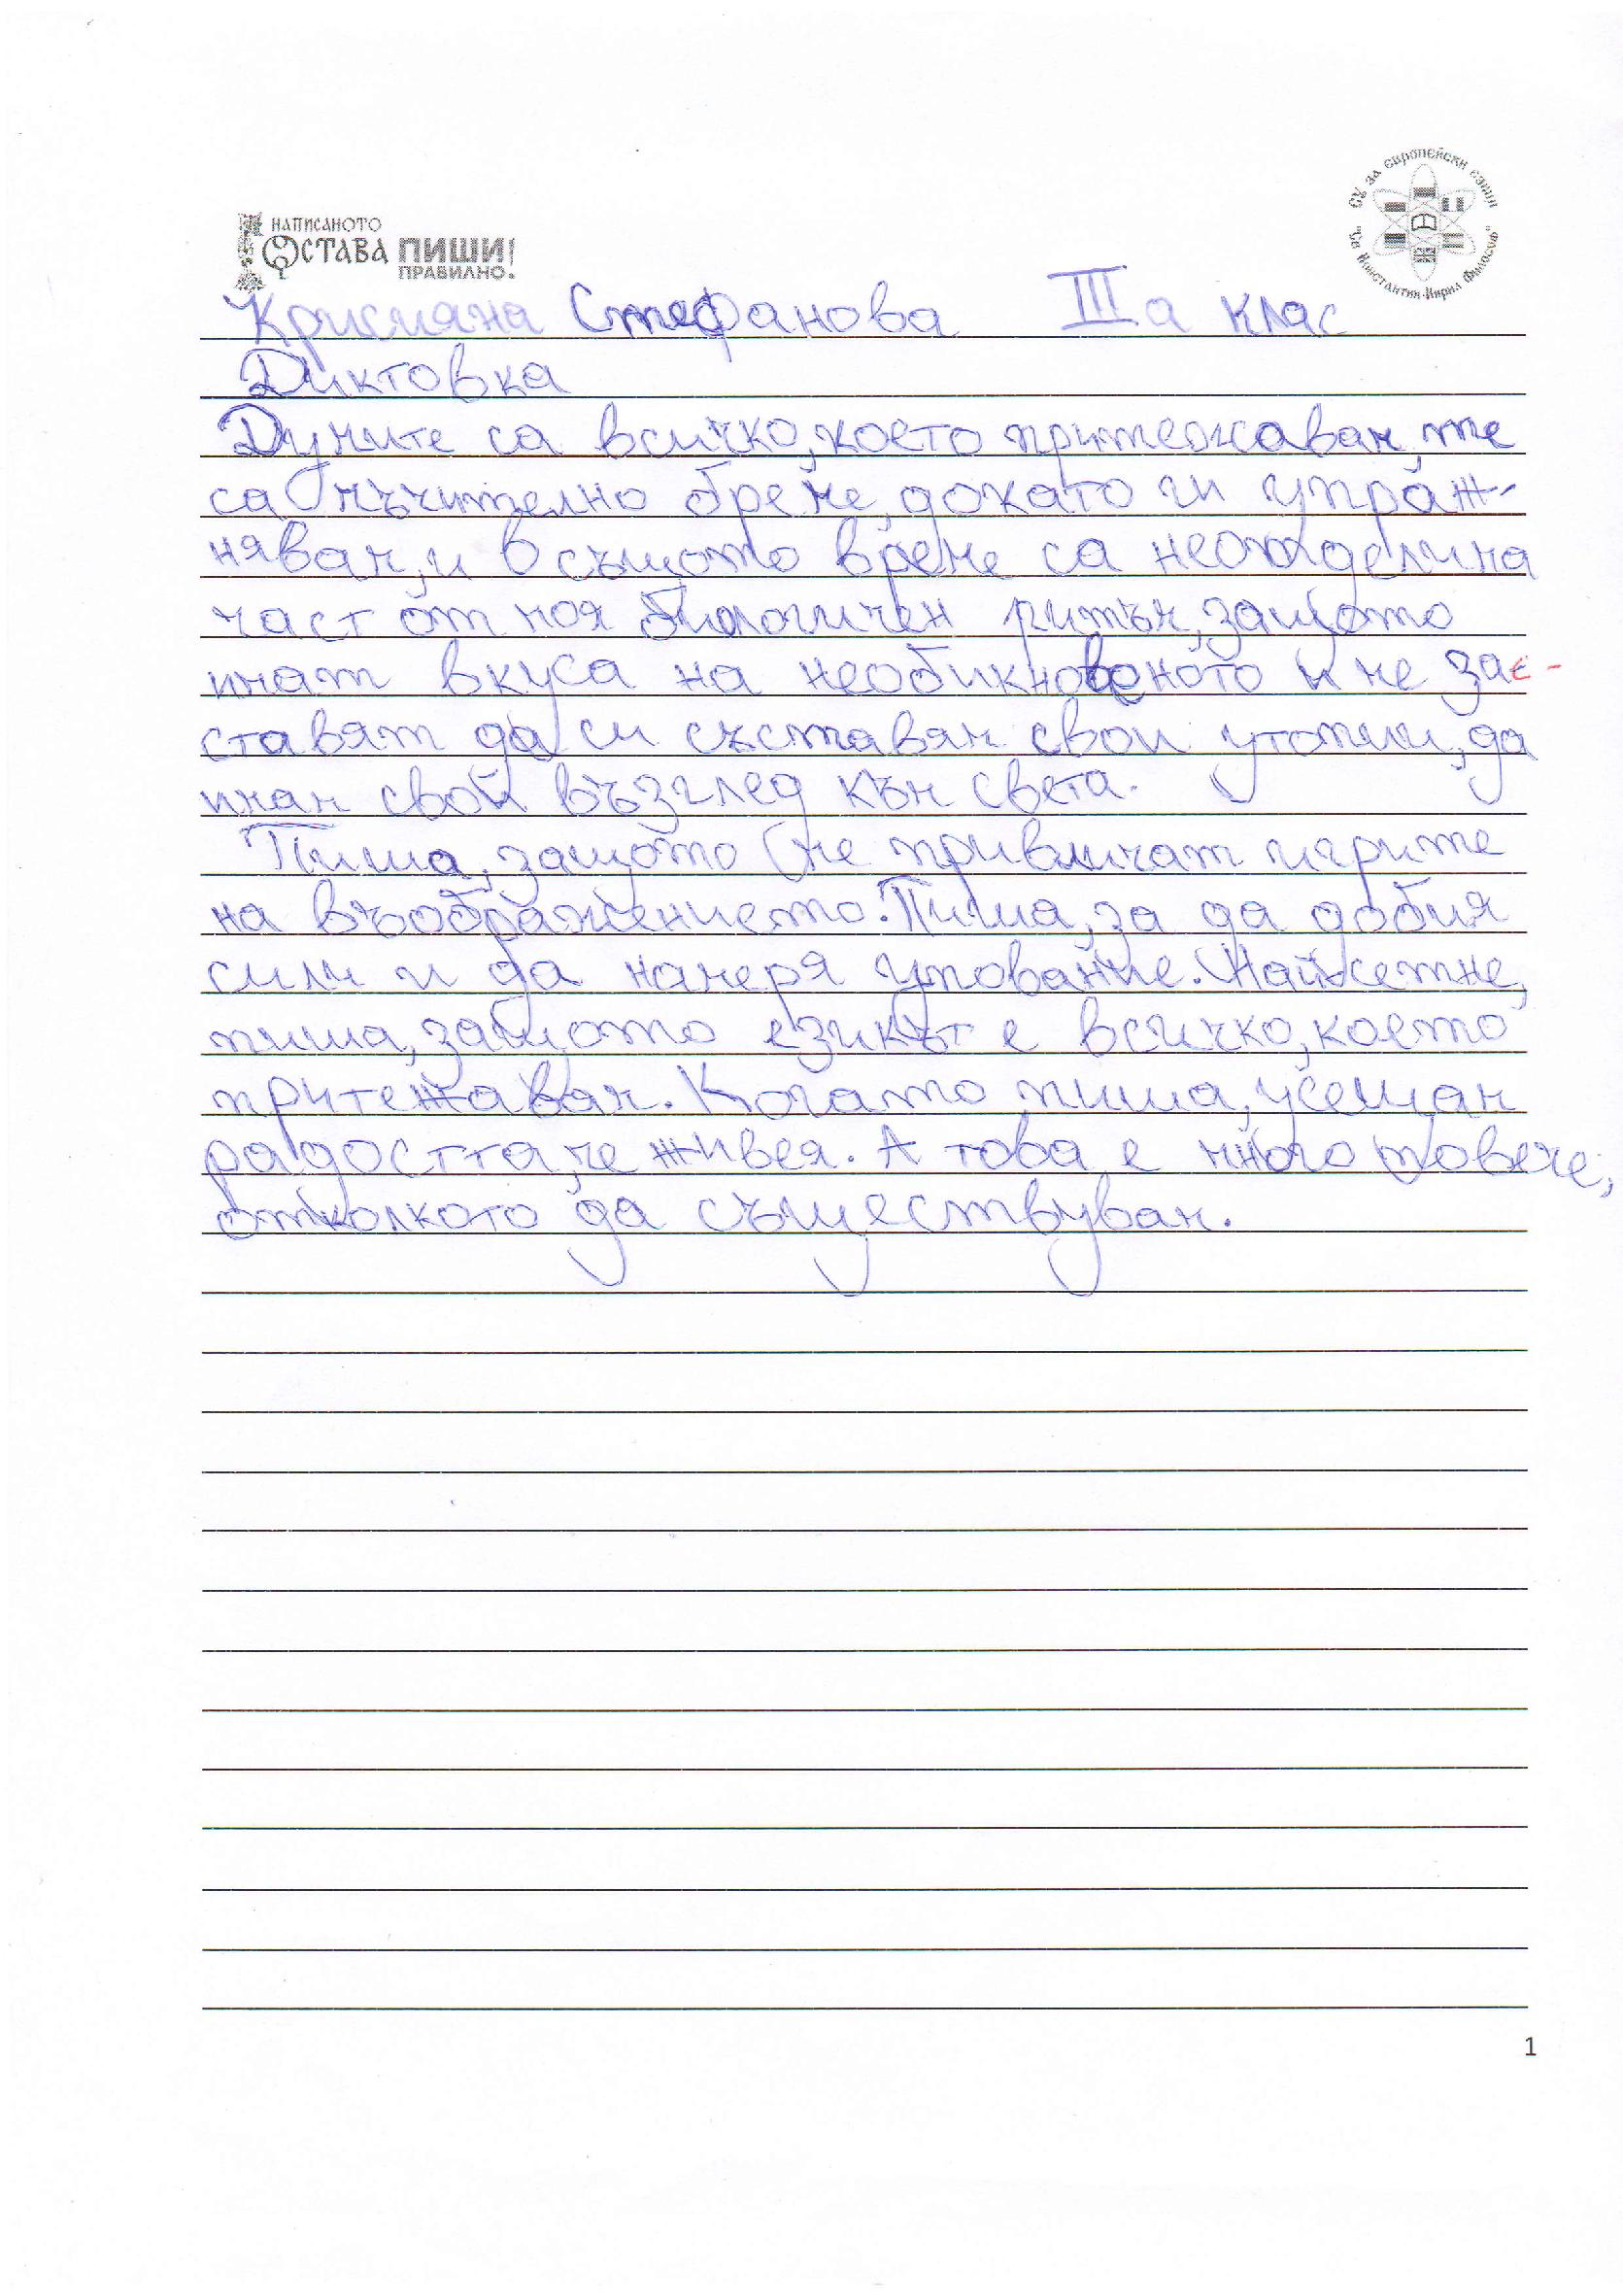 НАПИСАНОТО
ОСТАВА ПИШИ!
ПРАВИЛНО.
СУ за европейски езици
"Св. Константин-Кирил Философ"
Крисмяна Стефанова IIIа клас
Диктовка
Думите са всичко, което притежавам, те
са мъчително бреме, докато ги упраж-
нявам, и в същото време са неотделима
част от моя биологичен ритъм, защото
имат вкуса на необикновеното и ме зас-
ставят да си съставям свои утопии, да
имам свой възглед към света.
Пиша, защото ме привличат игрите
на въображението. Пиша, за да добия
сили и да намеря упование. Найсетне,
пиша, защото езикът е всичко, което
притежавам. Когато пиша, усещам
радостта, че живея. А това е много повече,
отколкото да съществувам.
1